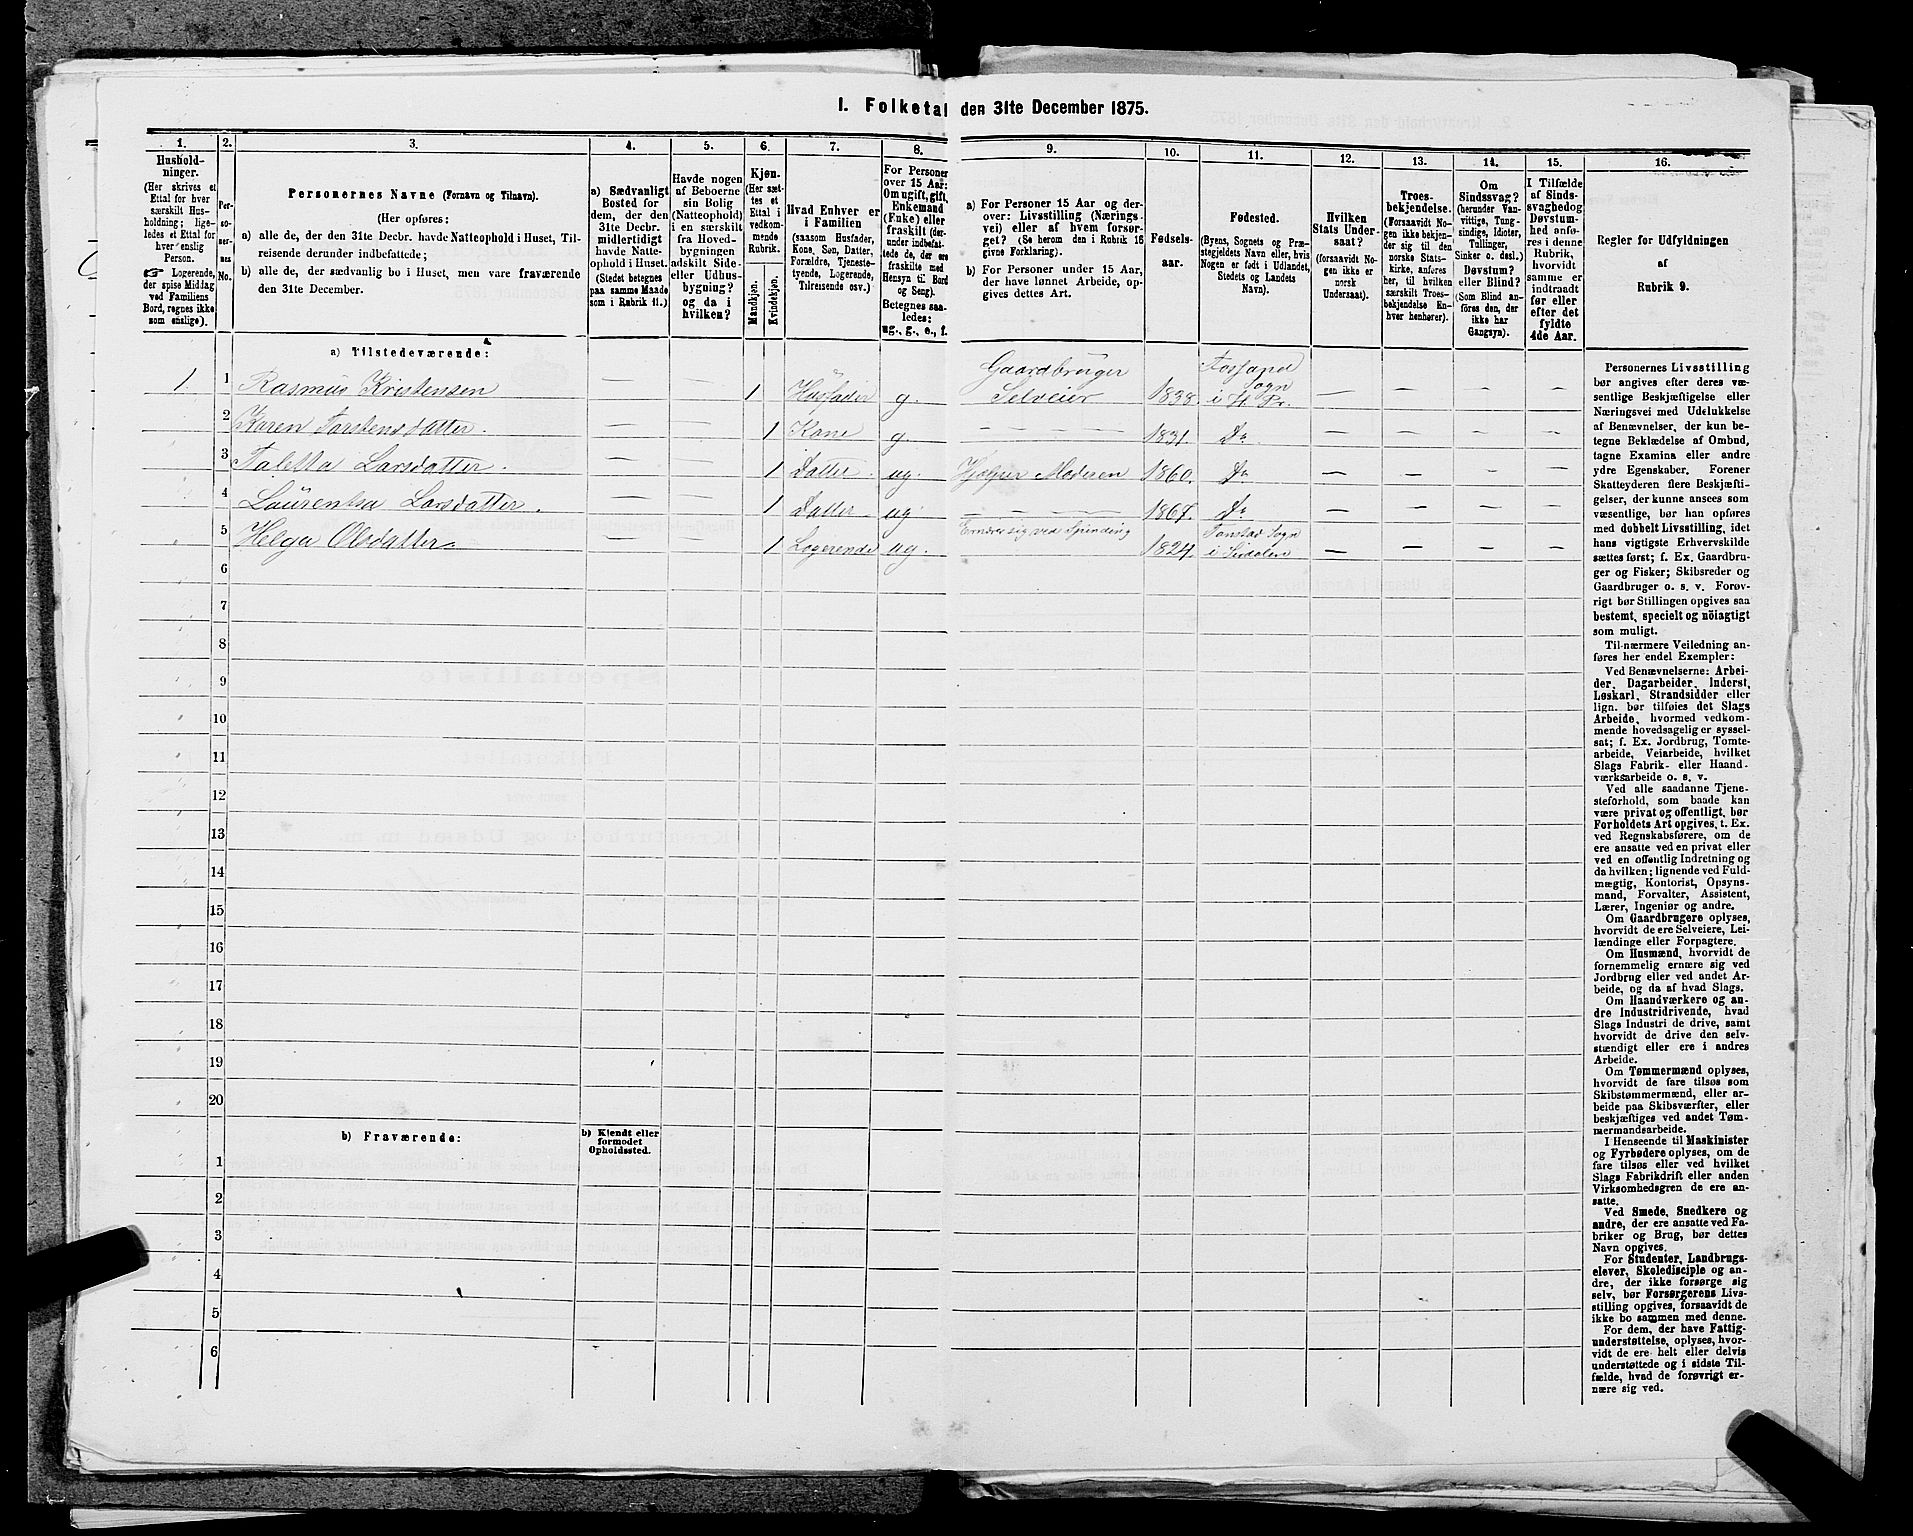 I. Folketal den 31te December 1875.
1.
Hushold-
ninger.
(Her skrives et
Ettal for hver
særskilt Hus-
holdning; lige-
ledes et Ettal for
hver enslig
Person.
☞ Logerende,
der spise Middag
ved Familiens
Bord, regnes ikke
som enslige).
2.
Per-
so-
ner-
nes
No.
3.
Personernes Navne (Fornavn og Tilnavn).
(Her opføres:
a) alle de, der den 31te Decbr. havde Natteophold i Huset, Til-
reisende derunder indbefattede;
b) alle de, der sædvanlig bo i Huset, men vare fraværende
den 31te December.
4.
a) Sædvanligt
Bosted for
dem, der den
31te Decbr.
midlertidigt
havde Natte-
ophold i Huset.
(Stedet betegnes
paa samme Maade
som i Rubrik 11.)
5.
Havde nogen
af Beboerne
sin Bolig
(Natteophold)
i en særskilt
fra Hoved-
bygningen
adskilt Side-
eller Udhus-
bygning?
og da i
hvilken?
6.
Kjøn.
(Her sæt-
tes et
Ettal i
vedkom-
mende
Rubrik
Mandkjøn.
Kvindekjøn.
7.
Hvad Enhver er
i Familien
(saasom Husfader,
Kone, Søn, Datter,
Forældre, Tjeneste-
tyende, Logerende,
Tilreisende osv.)
8.
For Personer
over 15 Aar:
Om ugift, gift,
Enkemand
(Enke) eller
fraskilt (der-
under indbefat-
tede de, der ere
fraskilte med
Hensyn til Bord
og Seng).
Betegnes saa-
ledes:
ug., g., e., f.
9.
a) For Personer 15 Aar og der-
over: Livsstilling (Nærings-
vei) eller af hvem forsør-
get? (Se herom den i Rubrik 16
givne Forklaring).
b) For Personer under 15 Aar,
der have lønnet Arbeide, op-
gives dettes Art.
10.
Fødsels-
aar.
11.
Fødested.
(Byens, Sognets og Præ-
stegjeldets Navn eller, hvis
Nogen er født i Udlandet,
Stedets og Landets
Navn).
12.
Hvilken
Stats Under-
saat?
(forsaavidt No-
gen ikke er
norsk
Undersaat).
13.
Troes-
bekjendelse.
(Forsaavidt No-
gen ikke bekjen-
der sig til den
norske Stats-
kirke, anføres
her, til hvilken
særskilt Troes-
bekjendelse En-
hver henhører).
14.
Om
Sindssvag?
(herunder Van-
vittige, Tung-
sindige, Idioter,
Tullinger,
Sinker o. desl.)
Døvstum?
eller Blind?
(Som Blind an-
føres den, der
ikke har
Gangsyn).
15.
I Tilfælde
af Sinds-
svaghed og
Døvstum-
hed anfø-
res i denne
Rubrik,
hvorvidt
samme er
indtraadt
før eller
efter det
fyldte
4de Aar.
16.
Regler for Udfyldningen
af
Rubrik 9.
a) Tilstedeværende:
1 1 Rasmus Kristensen — — 1 Husfader g. Gaardbruger Selveier 1838. Sogn i Pr. — — — —
2 Karen Torstensdatter. — — 1 Kone g. — — — — 1831. Do — — — —
3 Taletta Larsdatter. — — 1 Datter. ug. Hjelper Moderen 1860. Do — — — —
4 Laurentsa Larsdatter — — 1 Datter ug 1867. Do — — — —
5 Helga Olsdatter — — 1 Logerende ug. Ernærer sig ved Spinding 1824. Tonstad Sogn i Sirdalen — — — —
6
7
8
9
10
11
12
13
14
15
16
17
18
19
20
b) Fraværende:
b) Kjendt eller
formodet
Opholdssted.
1
2
3
4
5
6
Personernes Livsstilling
bør angives efter deres væ-
sentlige Beskjæftigelse eller
Næringsvei med Udelukkelse
af Benævnelser, der kun be-
tegne Beklædelse af Ombud,
tagne Examina eller andre
ydre Egenskaber. Forener
Skatteyderen flere Beskjæfti-
gelser, der kunne ansees som
væsentlige, bør han opføres
med dobbelt Livsstilling, idet
hans vigtigste Erhvervskilde
sættes først; f. Ex. Gaardbru-
ger og Fisker; Skibsreder og
Gaardbruger o. s. v. Forøv-
rigt bør Stillingen opgives saa
bestemt, specielt og nöiagtigt
som muligt.
Til nærmere Veiledning an-
føres her endel Exempler:
Ved Benævnelserne: Arbei-
der, Dagarbeider, Inderst,
Løskarl, Strandsidder eller
lign. bør tilføies det Slags
Arbeide, hvormed vedkom-
mende hovedsagelig er syssel-
sat; f. Ex. Jordbrug, Tomte-
arbeide, Veiarbeide, hvilket
Slags Fabrik- eller Haand-
værksarbeide o. s. v.
Ved alle saadanne Tjene-
steforhold, som baade kan
være privat og offentligt, bør
Forholdets Art opgives, t. Ex.
ved Regnskabsførere, om de
ere ansatte ved en privat eller
ved en offentlig Indretning og
da hvilken; lignende ved Fuld-
mægtig, Kontorist, Opsyns-
mand, Forvalter, Assistent,
Lærer, Ingeniør og andre.
Om Gaardbrugere oplyses,
hvorvidt de ere Selveiere, Lei-
lændinge eller Forpagtere.
Om Husmænd, hvorvidt de
fornemmelig ernære sig ved
Jordbrug eller ved andet Ar-
beide, og da af hvad Slags.
Om Haandværkere og an-
dre Industridrivende, hvad
Slags Industri de drive, samt
hvorvidt de drive den selv-
stændigt eller ere i andres
Arbeide.
Om Tømmermænd oplyses,
hvorvidt de fare tilsøs som
Skibstømmermænd, eller ar-
beide paa Skibsværfter, eller
beskjæftiges ved andet Tøm-
mermandsarbeide.
I Henseende til Maskinister
og Fyrbødere oplyses, om de
fare tilsøs eller ved hvilket
Slags Fabrikdrift eller anden
Virksomhedsgren de ere an-
satte.
Ved Smede, Snedkere og
andre, der ere ansatte ved Fa-
briker og Brug, bør dettes
Navn opgives.
For Studenter, Landbrugs-
elever, Skoledisciple og an-
dre, der ikke forsørge sig
selv, bør Forsørgerens Livs-
stilling opgives, forsaavidt de
ikke bo sammen med denne.
For dem, der have Fattig-
understøttelse, oplyses, hvor-
vidt de ere helt eller delvis
understøttede og i sidste Til-
fælde, hvad de forøvrigt er-
nære sig ved.